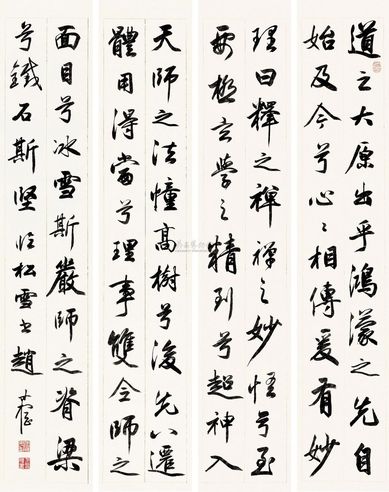 道之大原出乎鴻濛之先自
始及今兮心心相傳爰有妙
理曰釋之禪禪之妙悟兮至
要極玄學之精到兮超神入
天師之法幢高樹兮後先八還
體用得當兮理事雙全師之
面目兮冰雪斯嚴師之脊梁
兮鐵石斯堅臨松雪書趙